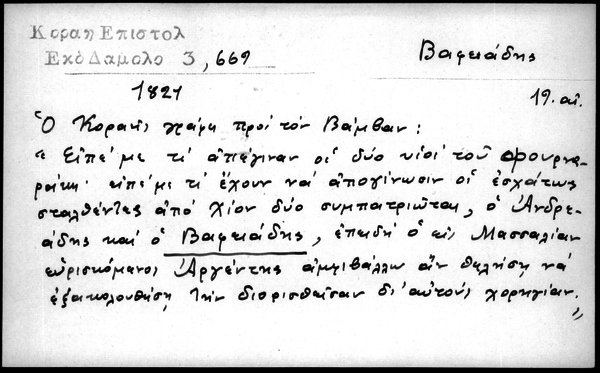 Κοραη Επιστολ
Εκδ Δαμαλα 3, 669
Βαφειάδης
1821
19. αἰ.
Ὁ Κοραῆς γράφει πρὸς τὸν Βάμβαν:
"Εἰπέ με τί ἀπέγιναν οἱ δύο υἱοὶ τοῦ Φουρνα-
ράκη· εἰπέ με τί ἔχουν νὰ ἀπογίνωσιν οἱ ἐσχάτως
σταλθέντες ἀπὸ Χίον δύο συμπατριῶται, ὁ Ἀνδρε-
άδης καὶ ὁ Βαφειάδης, ἐπειδὴ ὁ εἰς Μασσαλίαν
εὑρισκόμενος Ἀργέντης ἀμφιβάλλω ἂν θελήση νὰ
ἐξακολουθήση τὴν διορισθεῖσαν δι' αὐτοὺς χορηγίαν."